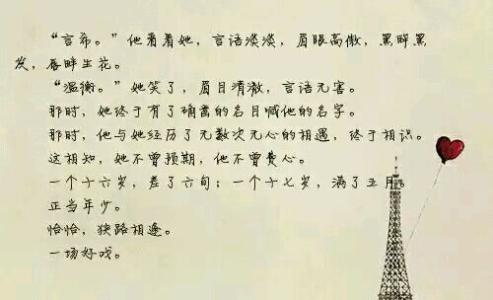 “言希。”他看着她，言语淡淡，眉眼高傲，黑眸黑
发，唇畔生花。
“温衡。”她笑了，眉目清澈，言语无害。
那时，她终于有了确凿的名目喊他的名字。
那时，他与她经历了无数次无心的相遇，终于相识。
这相知，她不曾预期，他不曾费心。
一个十六岁，差了六旬；一个十七岁，满了五月。
正当年少。
恰恰，狭路相逢。
一场好戏。